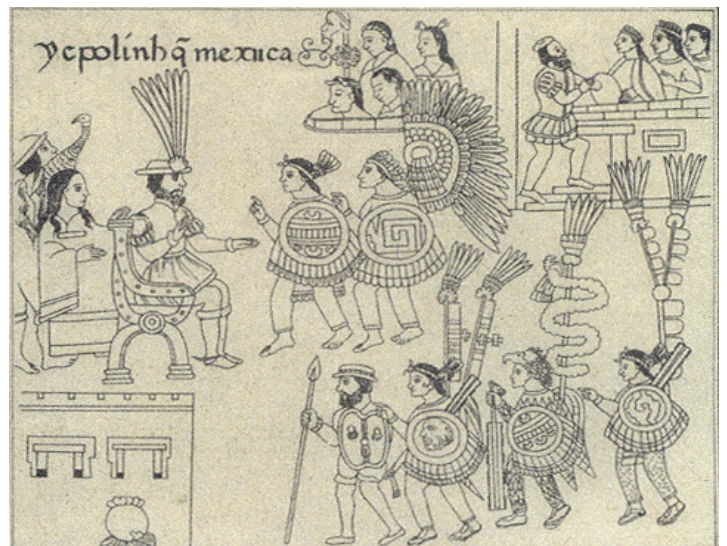 ycpolinhq̃ mexuca